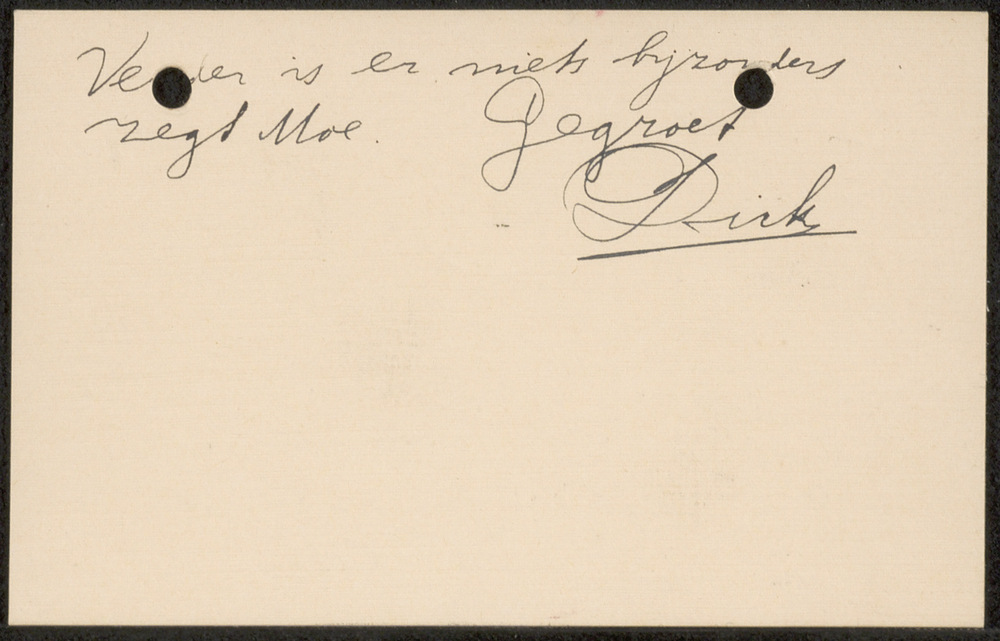 Verder is er niets bijzonders
zegt Moe. Gegroet
Dirk